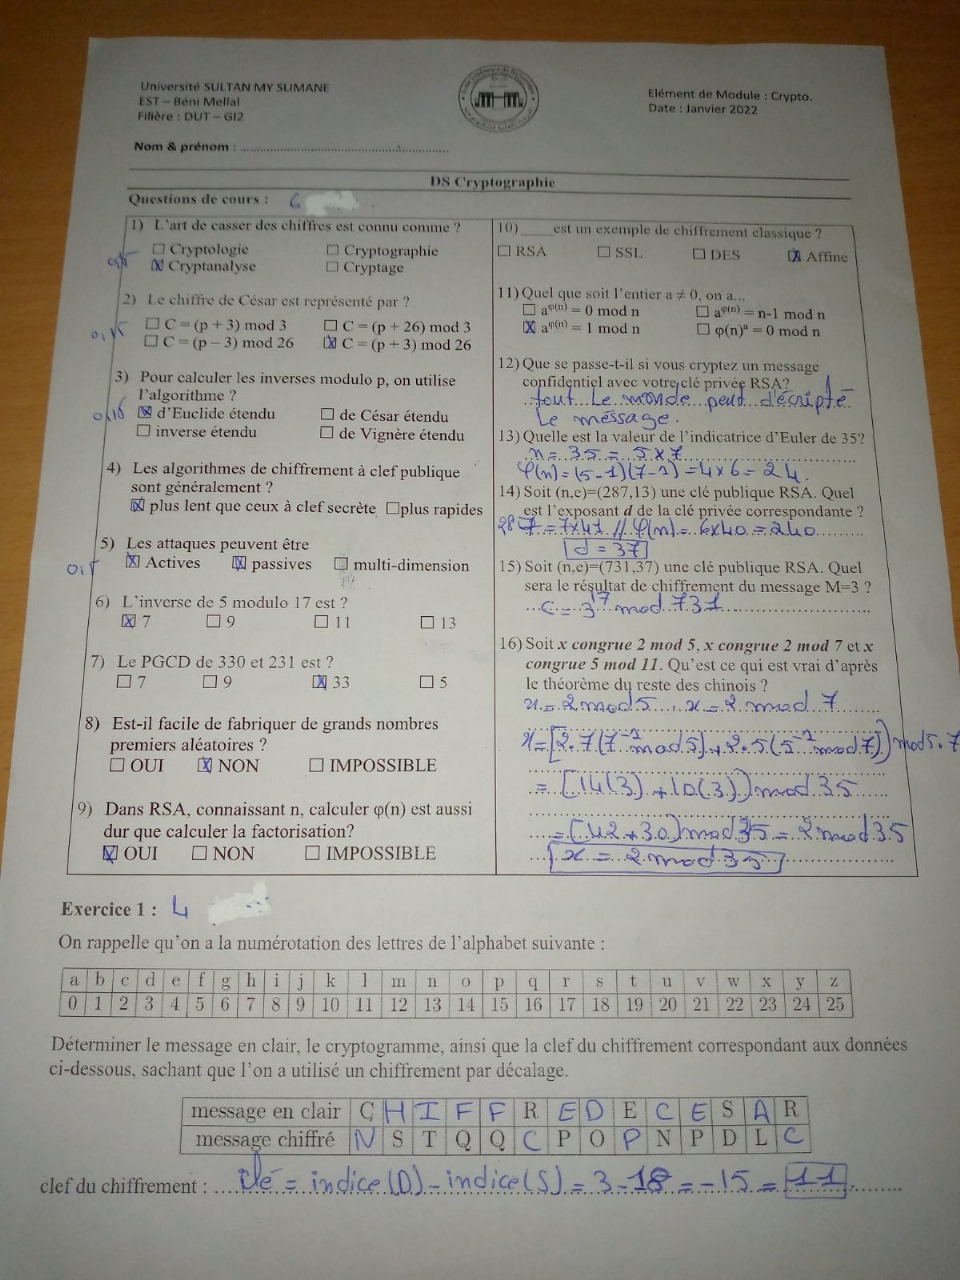 Université SULTAN MY SLIMANE
EST – Béni Mellal
Filière : DUT – GI2
Elément de Module : Crypto.
Date : Janvier 2022
Nom & prénom :
DS Cryptographie
Questions de cours : 6
1) L'art de casser des chiffres est connu comme ?
☐ Cryptologie ☐ Cryptographie
☒ Cryptanalyse ☐ Cryptage
2) Le chiffre de César est représenté par ?
☐ C = (p + 3) mod 3 ☐ C = (p + 26) mod 3
☐ C = (p – 3) mod 26 ☒ C = (p + 3) mod 26
3) Pour calculer les inverses modulo p, on utilise
l'algorithme ?
☒ d'Euclide étendu ☐ de César étendu
☐ inverse étendu ☐ de Vignère étendu
4) Les algorithmes de chiffrement à clef publique
sont généralement ?
☒ plus lent que ceux à clef secrète ☐ plus rapides
5) Les attaques peuvent être
☒ Actives ☒ passives ☐ multi-dimension
6) L'inverse de 5 modulo 17 est ?
☒ 7 ☐ 9 ☐ 11 ☐ 13
7) Le PGCD de 330 et 231 est ?
☐ 7 ☐ 9 ☒ 33 ☐ 5
8) Est-il facile de fabriquer de grands nombres
premiers aléatoires ?
☐ OUI ☒ NON ☐ IMPOSSIBLE
9) Dans RSA, connaissant n, calculer φ(n) est aussi
dur que calculer la factorisation?
☒ OUI ☐ NON ☐ IMPOSSIBLE
10) ____ est un exemple de chiffrement classique ?
☐ RSA ☐ SSL ☐ DES ☒ Affine
11) Quel que soit l'entier a ≠ 0, on a...
☐ a^φ(n) = 0 mod n ☐ a^φ(n) = n-1 mod n
☒ a^φ(n) = 1 mod n ☐ φ(n)ᵃ = 0 mod n
12) Que se passe-t-il si vous cryptez un message
confidentiel avec votre clé privée RSA?
tout Le monde peut d'écripté
Le message.
13) Quelle est la valeur de l'indicatrice d'Euler de 35?
n = 35 = 5 x 7
φ(n) = (5-1)(7-1) = 4 x 6 = 24
14) Soit (n,e)=(287,13) une clé publique RSA. Quel
est l'exposant d de la clé privée correspondante ?
287 = 7x41 // φ(n) = 6x40 = 240
d = 37
15) Soit (n,e)=(731,37) une clé publique RSA. Quel
sera le résultat de chiffrement du message M=3 ?
16) Soit x congrue 2 mod 5, x congrue 2 mod 7 et x
congrue 5 mod 11. Qu'est ce qui est vrai d'après
le théorème du reste des chinois ?
x = 2 mod 5 x = 2 mod 7
x = [2.7(7⁻¹ mod 5) + 2.5(5⁻¹ mod 7)] mod 5.7
= [14(3) + 10(3)] mod 35
= (42 + 30) mod 35 = 2 mod 35
x = 2 mod 35
Exercice 1 : 4
On rappelle qu'on a la numérotation des lettres de l'alphabet suivante :
a b c d e f g h i j k l m n o p q r s t u v w x y z
0 1 2 3 4 5 6 7 8 9 10 11 12 13 14 15 16 17 18 19 20 21 22 23 24 25
Déterminer le message en clair, le cryptogramme, ainsi que la clef du chiffrement correspondant aux données
ci-dessous, sachant que l'on a utilisé un chiffrement par décalage.
message en clair C H I F F R E D E C E S A R
message chiffré N S T Q Q C P O P N P D L C
clef du chiffrement : clé = indice(D) - indice(S) = 3 - 18 = -15 = 11